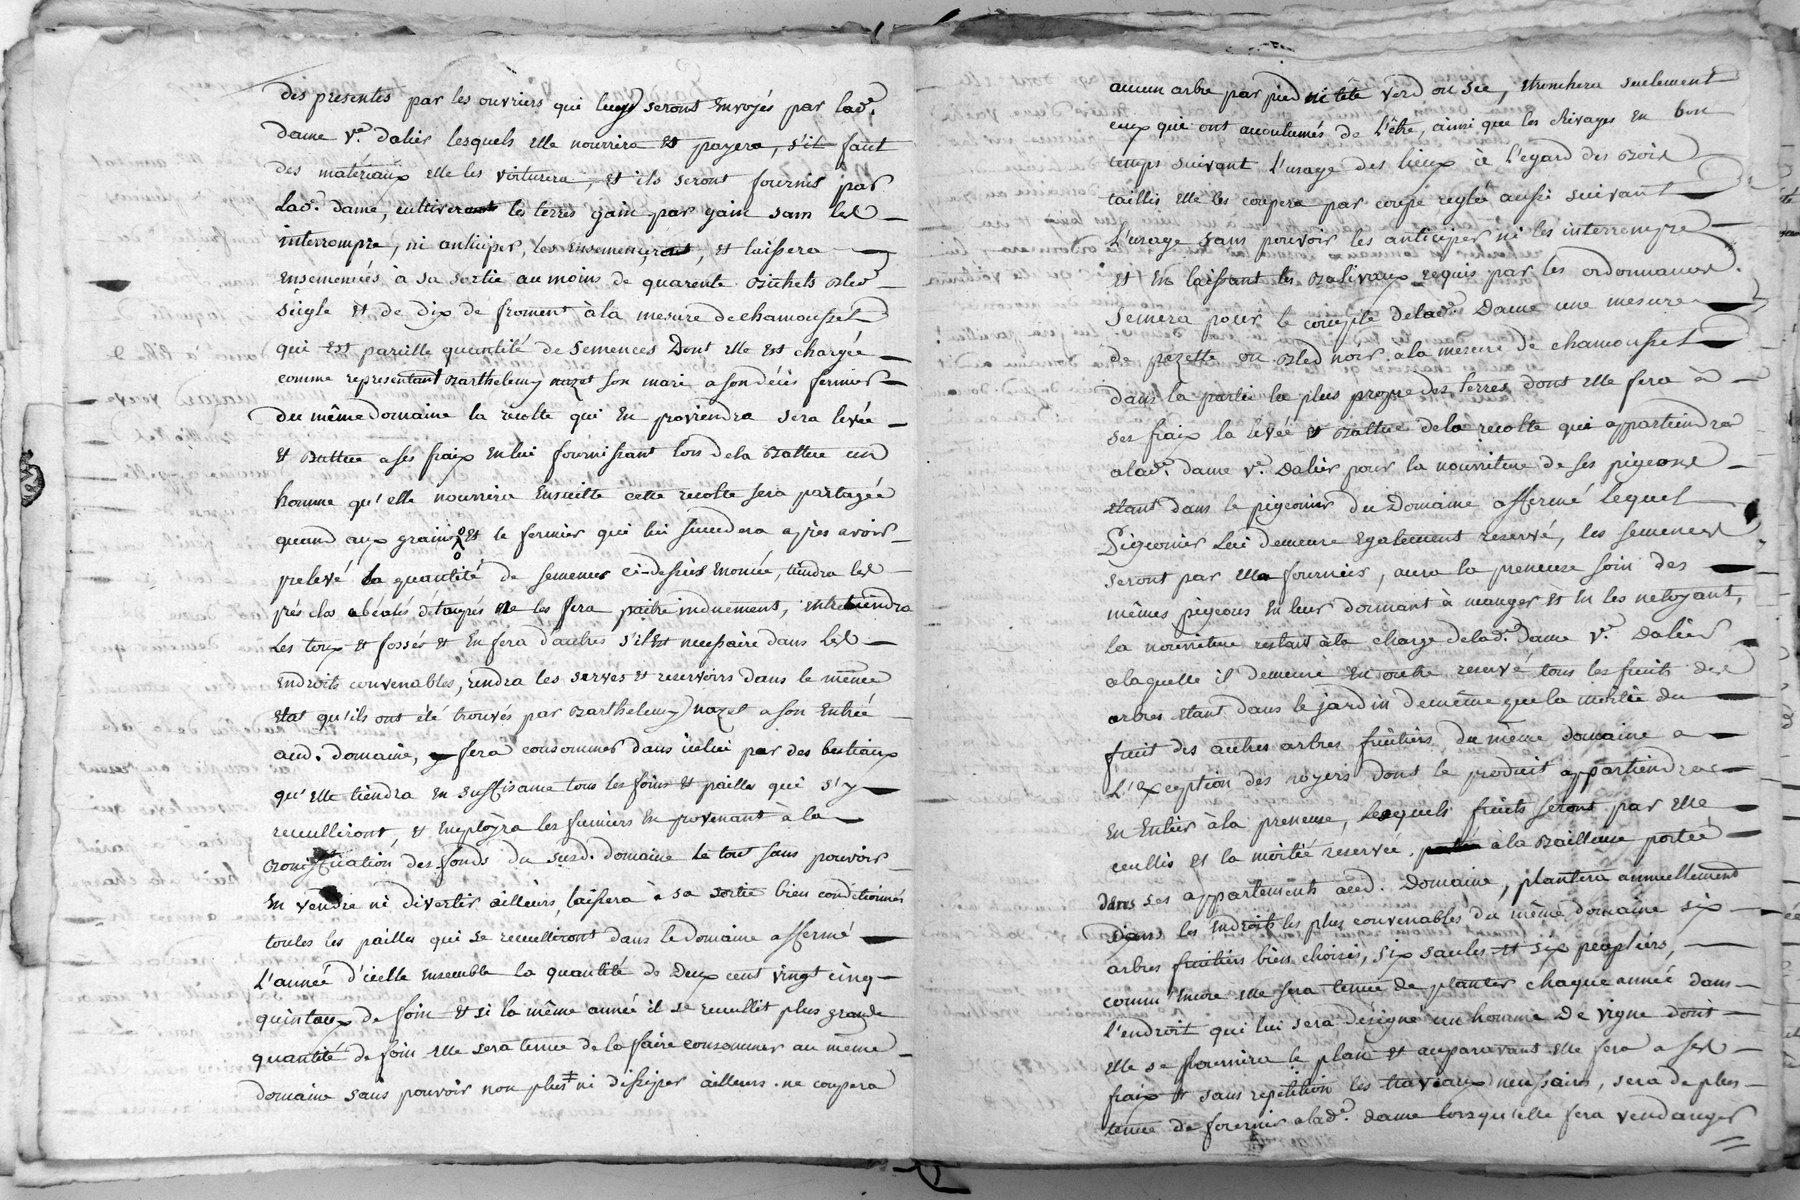 des presentes par les ouvriers qui luy seront envoyés par lade.
dame ve. dalier lesquels elle nourrira et payera, s'il faut
des matériaux elle les voiturera, et ils seront fournis par
lade. dame, cultivera les terres gain par gain sans les
interrompre, ni anticiper, les ensemencera, et laissera
ensemencés à sa sortie au moins de quarente Bichets Bled
séigle et de dix de froment à la mesure de chamousset
qui est pareille quantité de semences Dont elle est chargée
comme representant Barthelemy nazet son mari a son décès fermier
du même domaine la récolte qui en proviendra sera levée
et Battue a ses fraix en lui fournissant lors de la Battue un
homme qu'elle nourrira ensuitte cette recolte sera partagée
quand aux grains et le fermier qui lui succedera après avoir
prelevé la quantité de semences ci-dessus enoncée, tiendra les
prés clos ne les fera paitre induement, entretiendra
Les toux et fossés et en fera d'autres s'il est necessaire dans les
endroits convenables, rendra les serves et reservoirs dans le même
état qu'ils ont été trouvés par Barthelemy nazet a son entrée
aud. domaine, fera consommer dans icelui par des bestiaux
qu'elle tiendra en suffisance tous les foins et pailles qui s'y
recueilliront, et employra les fumiers en provenant à la
Bonification des fonds du susd. domaine Le tout sans pouvoir
en vendre ni divertir ailleurs, laissera à sa sortie bien conditionnés
toutes les pailles qui se recueilliront dans le domaine affermé
L'année d'icelle ensemble la quantité de Deux cent vingt cinq
quintaux de foin et si la même année il se recueillit plus grande
quantité de foin elle sera tenue de la faire consommer au même
domaine sans pouvoir non plus ni dissiper ailleurs. ne coupera
aucun arbre par pied ni tête verd ou sec, etronchera seulement
ceux qui ont accoutumés de l'être, ainsi que les rivages en bon
temps suivant l'usage des lieux à l'egard des Bois
taillis elle les coupera par coupe reglée aussi suivant
L'usage sans pouvoir les anticiper ni les interrompre
et en laissant les Balivaux requis par les ordonnances.
Semera pour le compte de lade. Dame une mesure
de pezette ou Bled noir a la mesure de chamousset
dans la partie la plus propre des terres dont elle fera à
ses fraix la levée et Battue de la récolte qui appartiendra
a lade. dame ve. Dalier pour la nourriture de ses pigeons
étant dans le pigeonier du Domaine affermé lequel
Pigeonier Lui demeure egalement reservé, les semences
seront par elle fournies, aura la preneuse soin des
mêmes pigeons en leur donnant à manger et en les netoyant,
la nourriture restant à la charge de lade. Dame ve. Dalier
a laquelle il demeure en outre reservé tous les fruits des
arbres etant dans le jardin de même que la moitié du
fruit des autres arbres fruitiers du même domaine a
L'exception des noyers dont le produit appartiendra
en entier à la preneuse, lesquels fruits seront par elle
ceuillis et la moitié reservée à la Bailleuse portée
dans ses appartements aud. Domaine, plantera annuellement
dans les endroits les plus convenables du même domaine six
arbres fruitiers bien choisis, six saules et six peupliers,
comm'encore elle sera tenue de planter chaque année dans
l'endroit qui lui sera designé un homme de vigne dont
elle se fournira le plan et auparavant elle fera a ses
fraix et sans repetition les travaux necessaires, sera de plus
tenue de fournir a lade. dame lorsqu'elle fera vendanger